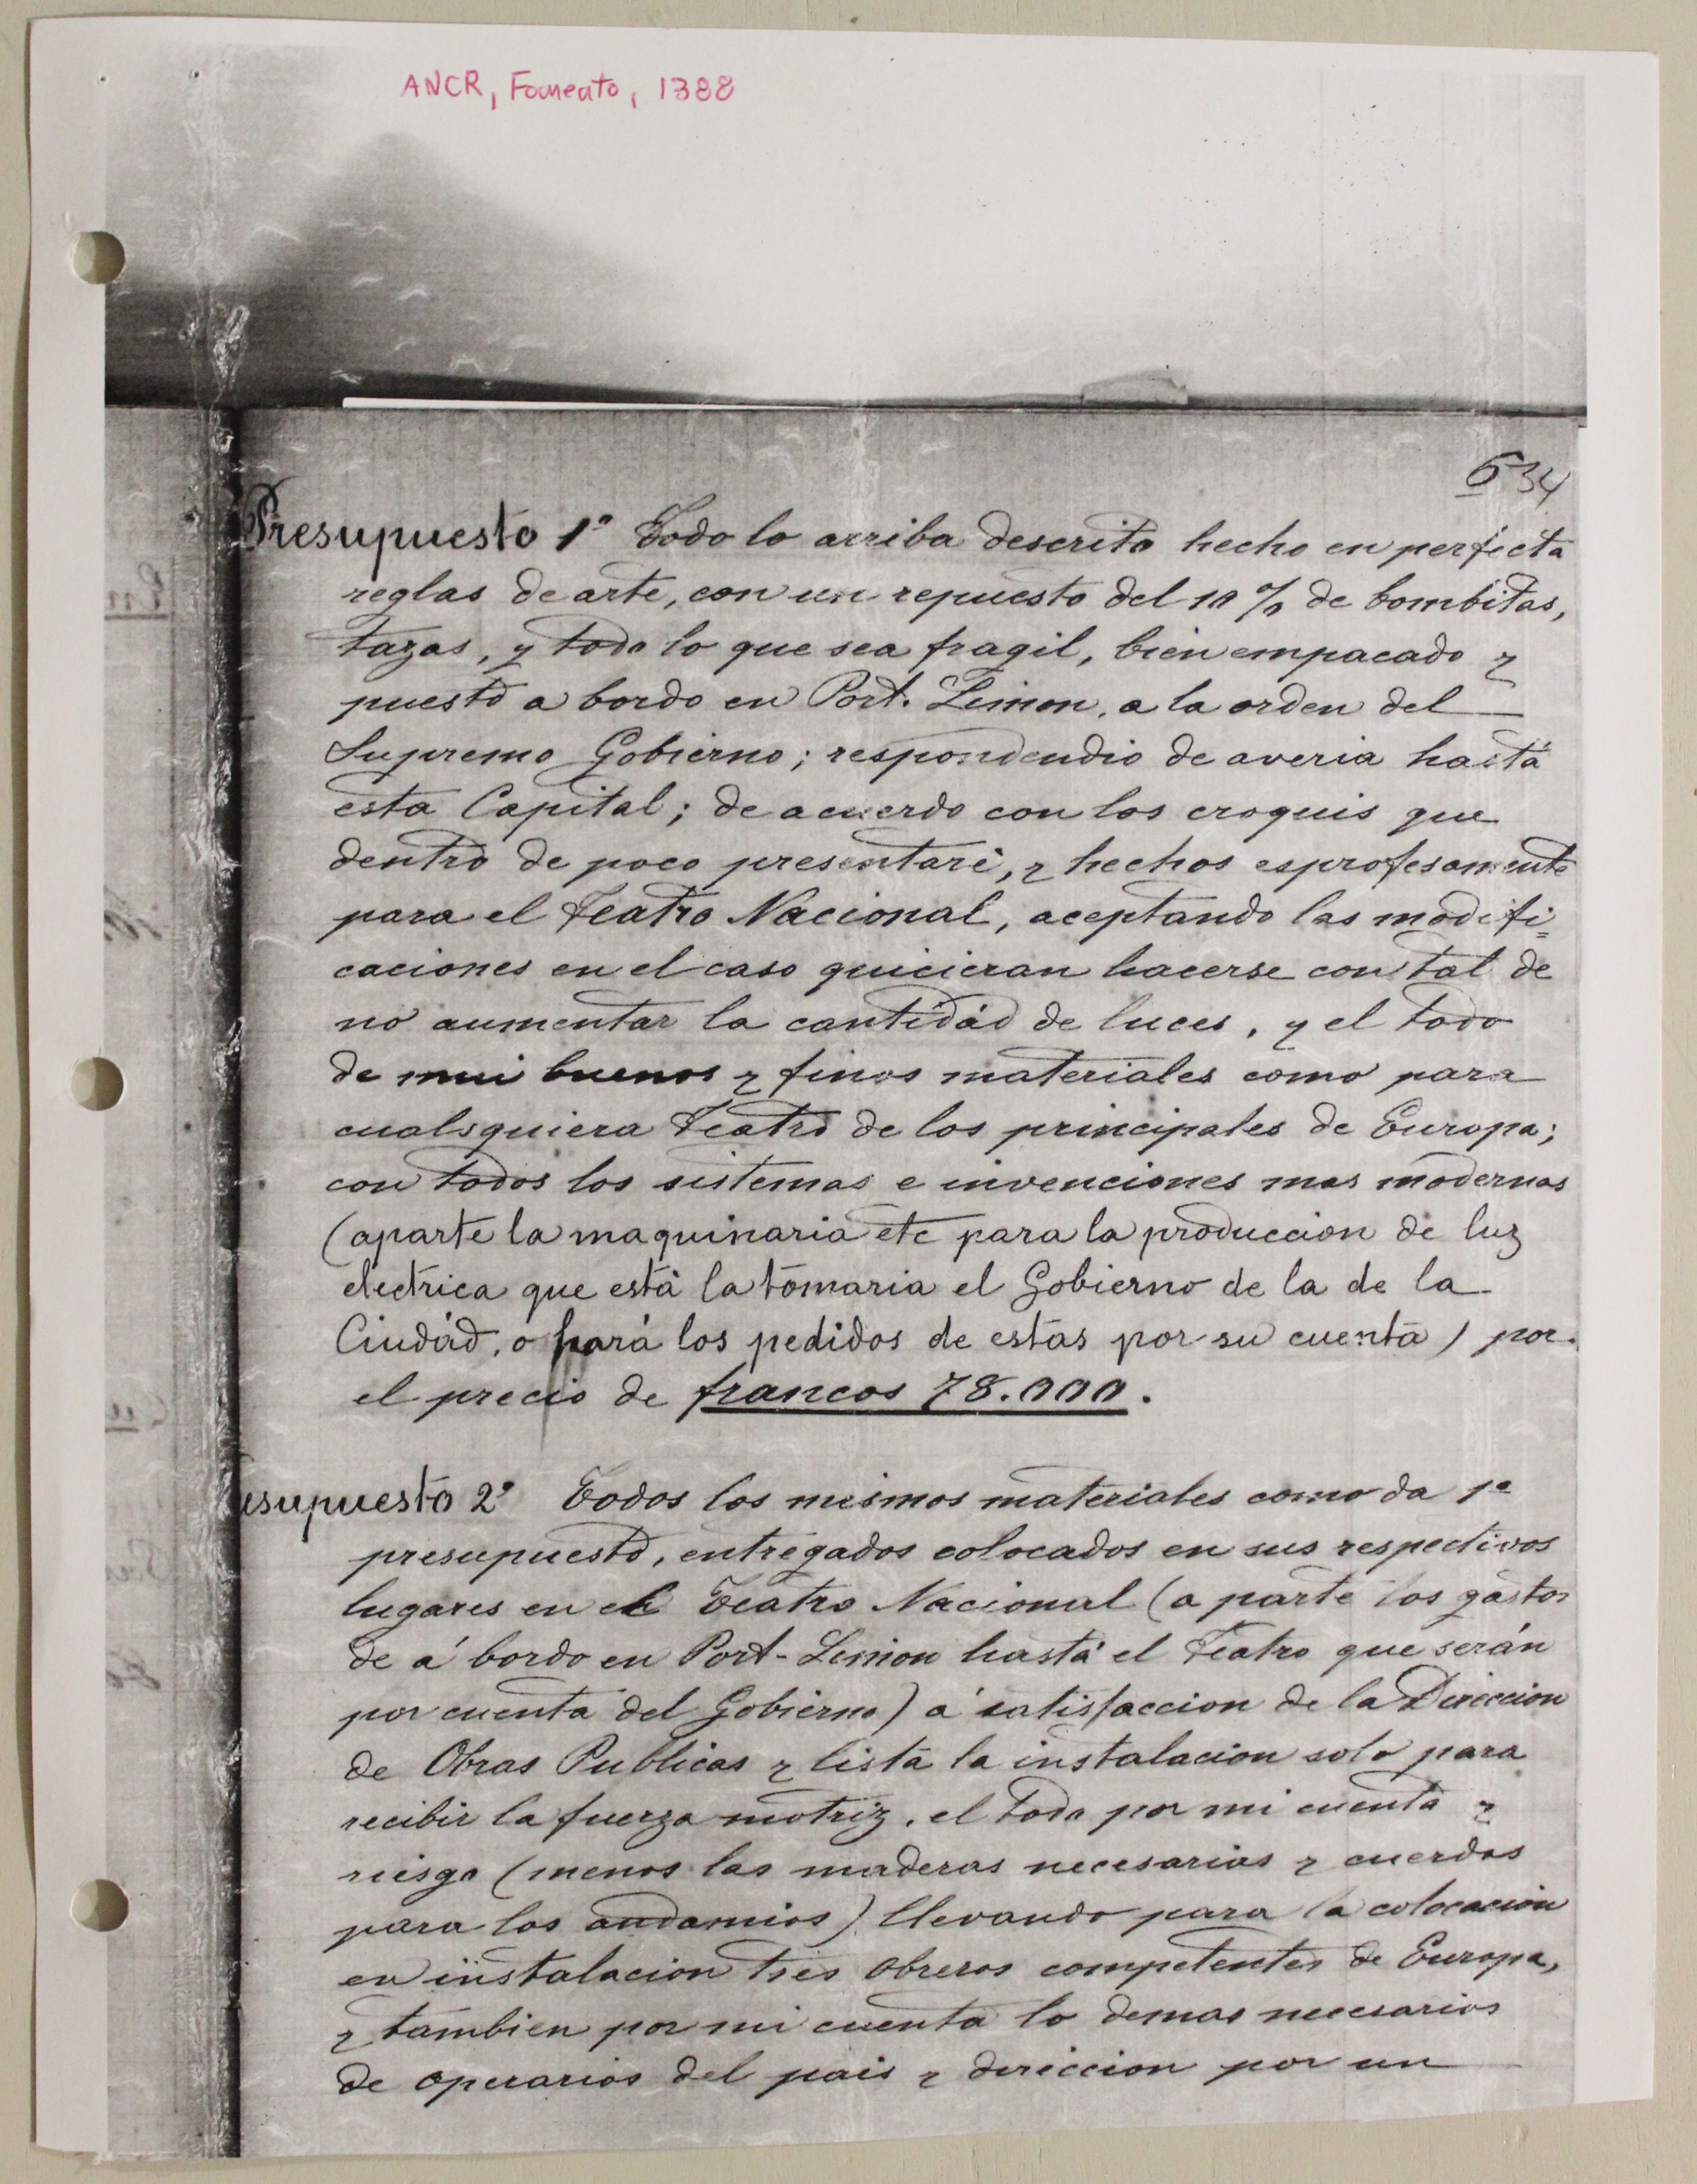 ANCR, Fomento, 1388
6 34
Presupuesto 1º Todo lo arriba descrito hecho en perfecta
reglas de arte, con un repuesto del 10 % de bombitas,
tazas, y todo lo que sea fragil, bien empacado y
puesto a bordo en Port. Limon, a la orden del
Supremo Gobierno; respondendio de averia hasta
esta Capital; de acuerdo con los croquis que
dentro de poco presentaré, y hechos esprofesamente
para el Teatro Nacional, aceptando las modifi=
caciones en el caso quicieran hacerse con tal de
no aumentar la cantidád de luces, y el todo
de mui buenos y finos materiales como para
cualsquiera Teatro de los principales de Europa;
con todos los sistemas e invenciones mas modernas
(aparte la maquinaria etc para la produccion de luz
electrica que està la tomaria el Gobierno de la de la
Ciudád, o hará los pedidos de estas por su cuenta) por
el precio de francos 78.000.
esupuesto 2º Todos los mismos materiales como da 1º
presupuesto, entregados colocados en sus respectivos
lugares en el Teatro Nacional (a parte los gastos
de á bordo en Port-Limon hasta el Teatro que serán
por cuenta del Gobierno) á satisfaccion de la Direccion
de Obras Publicas y lista la instalacion solo para
recibir la fuerza motriz, el todo por mi cuenta y
riesgo (menos las maderas necesarias y cuerdas
para los andamios) llevando para la colocacion
en instalacion tres obreros competentes de Europa,
y tambien por mi cuenta lo demas necesarios
de operarios del pais y direccion por un